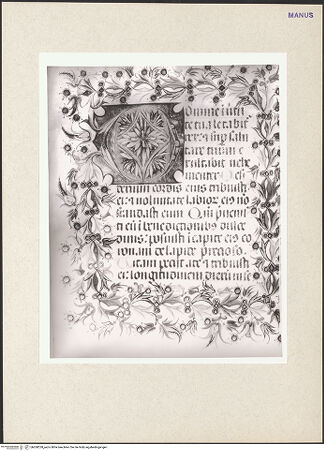 MANUS
Domine ī uir
te tua letabit̄
rex: ⁊ sup̄ salu
tare tuum e
xultabit uehe
menter Desi
derium cordis eius tribuisti
ei: ⁊ uoluntate labior̄ eis nō
fraudasti eum Qm̄ p̄ueni
sti eū ī benedictionibus dulce
dinis: posuisti ī capite eis co
ronam de lapide precioso.
Vitam peciit a te ⁊ tribuisti
ei: longitudinem dierū ī se